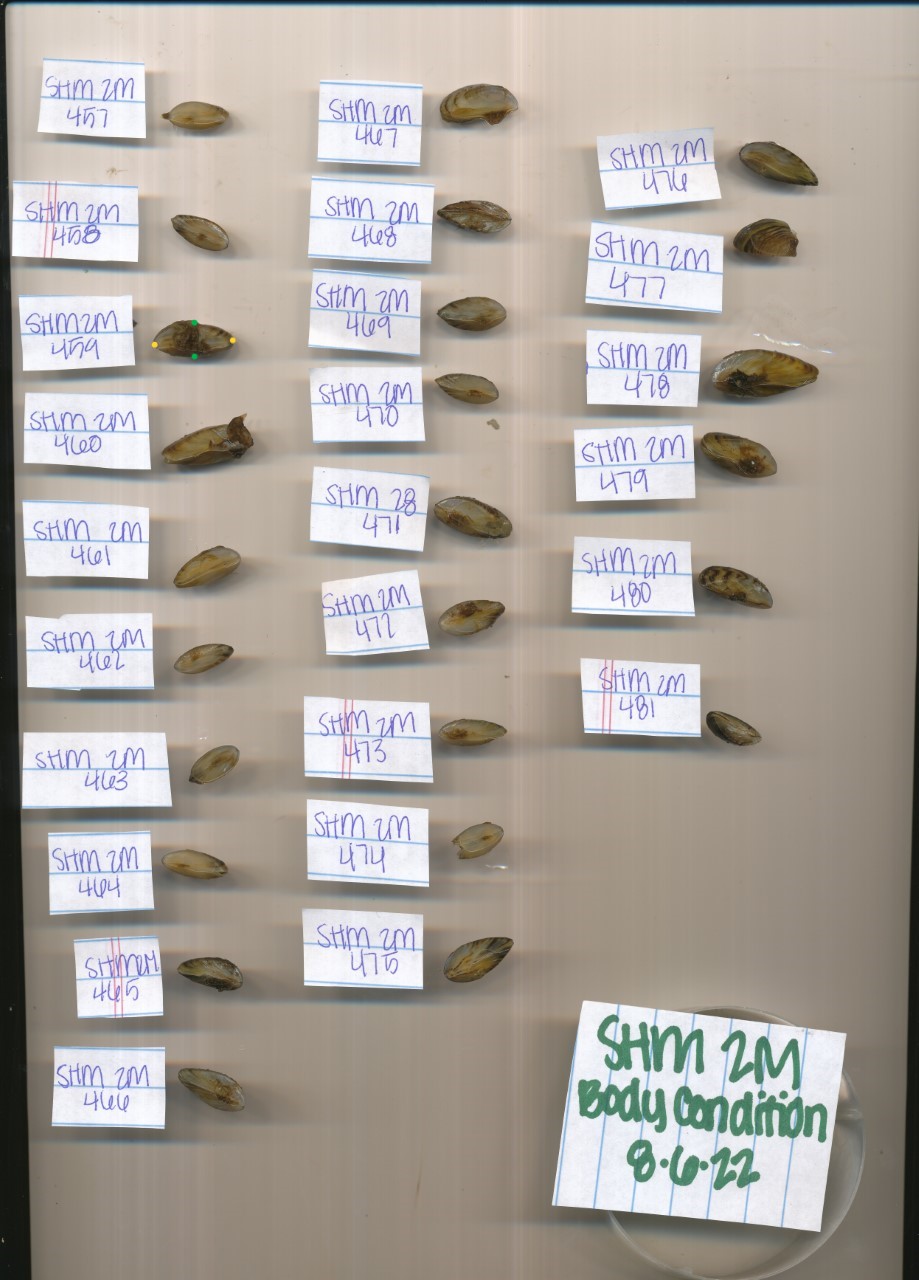 SHM 2M
457
SHM 2M
458
SHM 2M
459
SHM 2M
460
SHM 2M
461
SHM 2M
462
SHM 2M
463
SHM 2M
464
SHM 2M
465
SHM 2M
466
SHM 2M
467
SHM 2M
468
SHM 2M
469
SHM 2M
470
SHM 28
471
SHM 2M
472
SHM 2M
473
SHM 2M
474
SHM 2M
475
SHM 2M
476
SHM 2M
477
SHM 2M
478
SHM 2M
479
SHM 2M
480
SHM 2M
481
SHM 2M
Body Condition
8·6·22